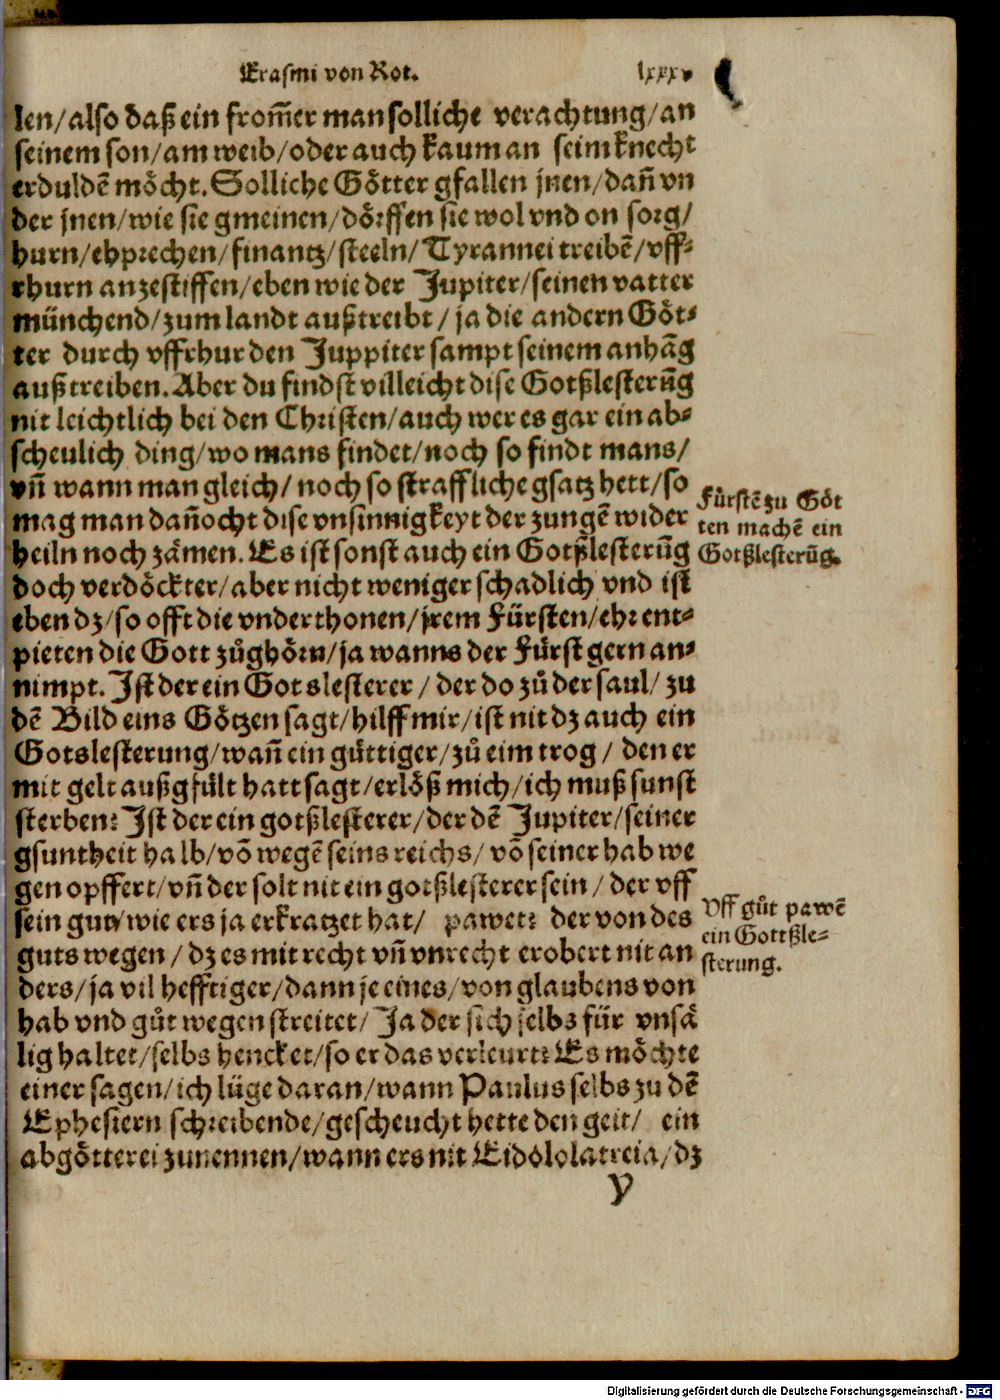 Erasmi von Rot. lxxxv
len/also daß ein from̃er man solliche verachtung/an
seinem son/am weib/oder auch kaum an seim knecht
erduldẽ möcht. Solliche Götter gfallen jnen/dañ vn
der jnen/wie sie gmeinen/dörffen sie wol vnd on sorg/
hurn/ehprechen/finantz/steeln/Tyrannei treibẽ/vff-
rhurn anzestiffen/eben wie der Jupiter/seinen vatter
münchend/zum landt außtreibt/ja die andern Göt-
ter durch vffrhur den Juppiter sampt seinem anhãg
außtreiben. Aber du findst villeicht dise Gotßlesterũg
nit leichtlich bei den Christen/auch wer es gar ein ab-
scheulich ding/wo mans findet/noch so findt mans/
vñ wann man gleich/noch so straffliche gsatz hett/so
mag man dañocht dise vnsinnigkeyt der zungẽ wider
heiln noch zämen. Es ist sonst auch ein Gotßlesterũg
doch verdöckter/aber nicht weniger schadlich vnd ist
eben dz/so offt die vnderthonen/jrem Fürsten/ehr ent-
pieten die Gott zůghörn/ja wanns der Fürst gern an-
nimpt. Ist der ein Gotslesterer/der do zů der saul/zu
dẽ Bild eins Götzen sagt/hilff mir/ist nit dz auch ein
Gotslesterung/wañ ein gůttiger/zů eim trog/den er
mit gelt außgfült hatt sagt/erlöß mich/ich muß sunst
sterben? Ist der ein gotßlesterer/der dẽ Jupiter/seiner
gsuntheit halb/võ wegẽ seins reichs/võ seiner hab we
gen opffert/vñ der solt nit ein gotßlesterer sein/der vff
sein gut/wie ers ja erkratzet hat/ pawet? der von des
guts wegen/dz es mit recht vñ vnrecht erobert nit an
ders/ja vil hefftiger/dann je eines/von glaubens von
hab vnd gůt wegen streitet/Ja der sich selbs für vnsä
lig haltet/selbs hencket/so er das verleurt? Es möchte
einer sagen/ich lüge daran/wann Paulus selbs zu dẽ
Ephesiern schreibende/gescheucht hette den geit/ ein
abgötterei zunennen/wann ers nit Eidololatreia/dz
y
Fürstẽ zu Göt
ten machẽ ein
Gotßlesterũg.
Vff gůt pawẽ
ein Gottßle-
sterung.
Digitalisierung gefördert durch die Deutsche Forschungsgemeinschaft - DFG